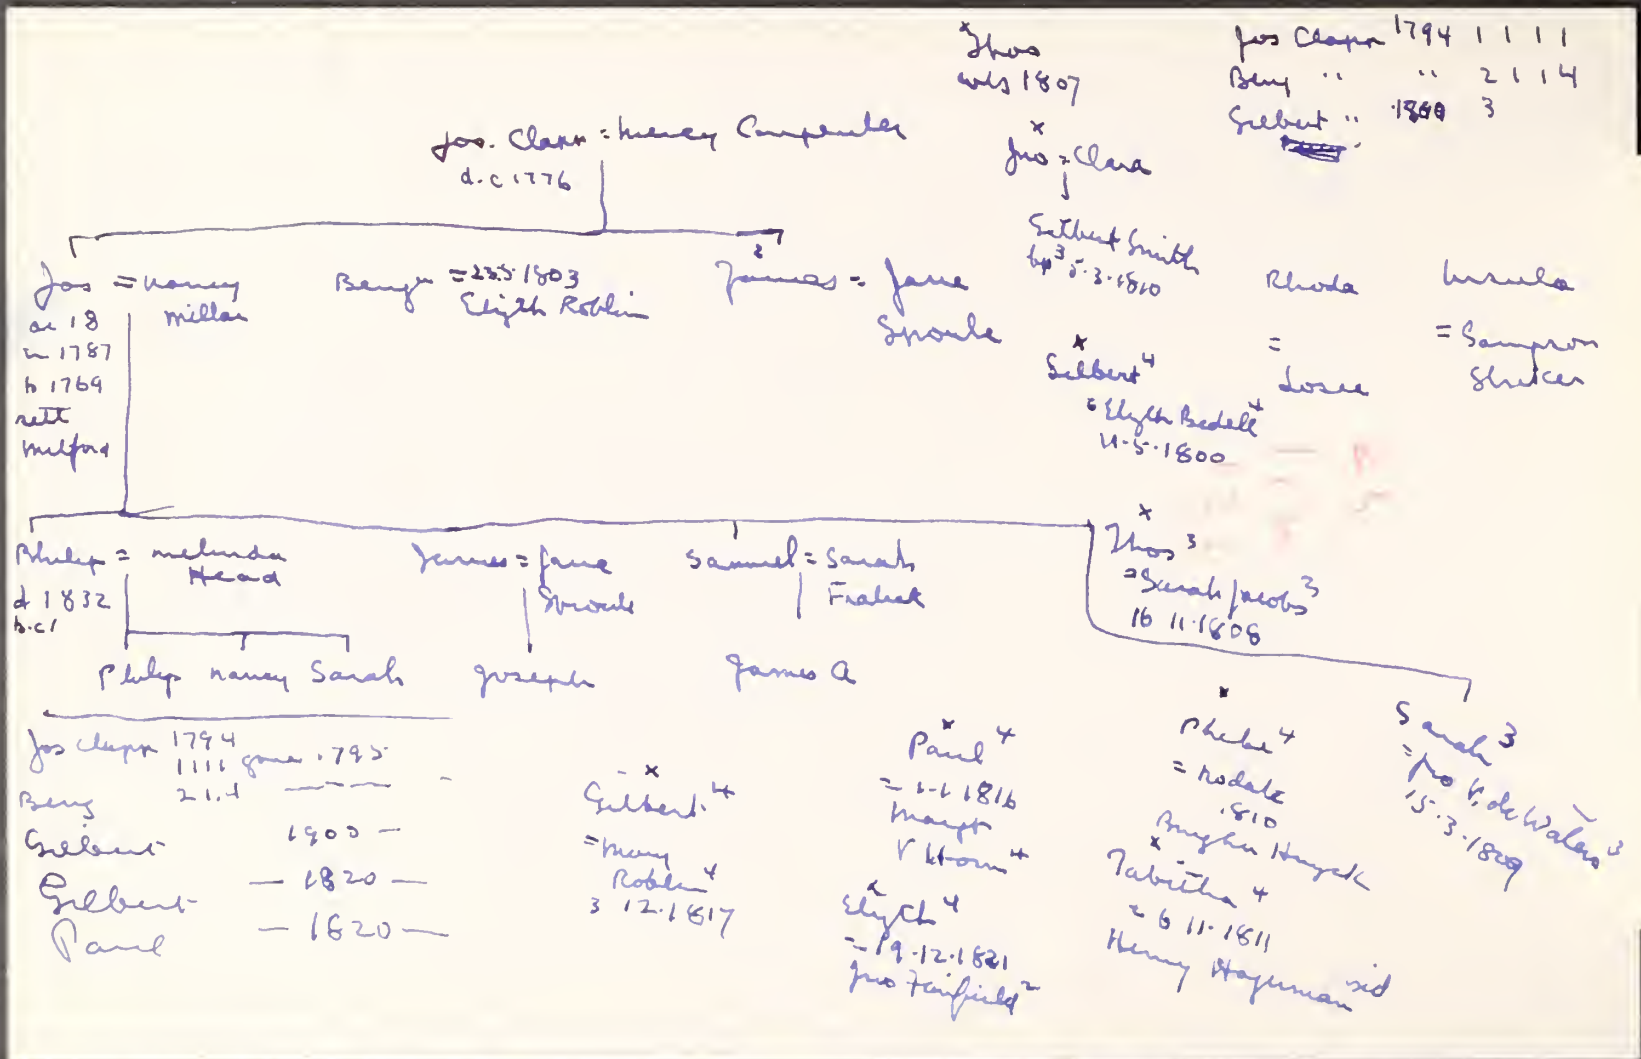 x
Thos
wls 1807
Jos Clapp 1794 1 1 1 1
Benj " " 2 1 1 4
Gilbert " 1800 3
Jos. Clapp = Mercy Carpenter
d. c 1776
x
Jno = Clara
Gilbert Smith
bp 3 5.3.1810
Jos = Nancy
Millar
ae 18
in 1787
b 1769
sett
Milford
Benj = 23.5.1803
Elizth Roblin
2
James = Jane
Sproule
Rhoda
=
Losee
Ursula
= Sampson
Striker
x
Gilbert 4
= Elizth Bedell 4
11.5.1800
Philip = Melinda
Head
d 1832
b.c1
James = Jane
Sproule
Samuel = Sarah
Fralick
x
Thos 3
= Sarah Jacobs 3
16 11.1808
Philip Nancy Sarah
Joseph
James A
Jos Clapp 1794
1111 gone 1795
Benj 2 1.4
Gilbert 1900 —
Gilbert — 1820 —
Paul — 1820 —
x
Gilbert 4
= Mary
Roblin 4
3 12.1817
x
Paul 4
= 1.1 1816
Margt
V Horn 4
x
Elizth 4
= 19.12.1821
Jno Fairfield 2
x
Phebe 4
=
1810
Burgher Huyck
x
Tabitha 4
= 6 11.1811
Henry Hagerman sid
Sarah 3
= Jno V. de Waters 3
15.3.1809